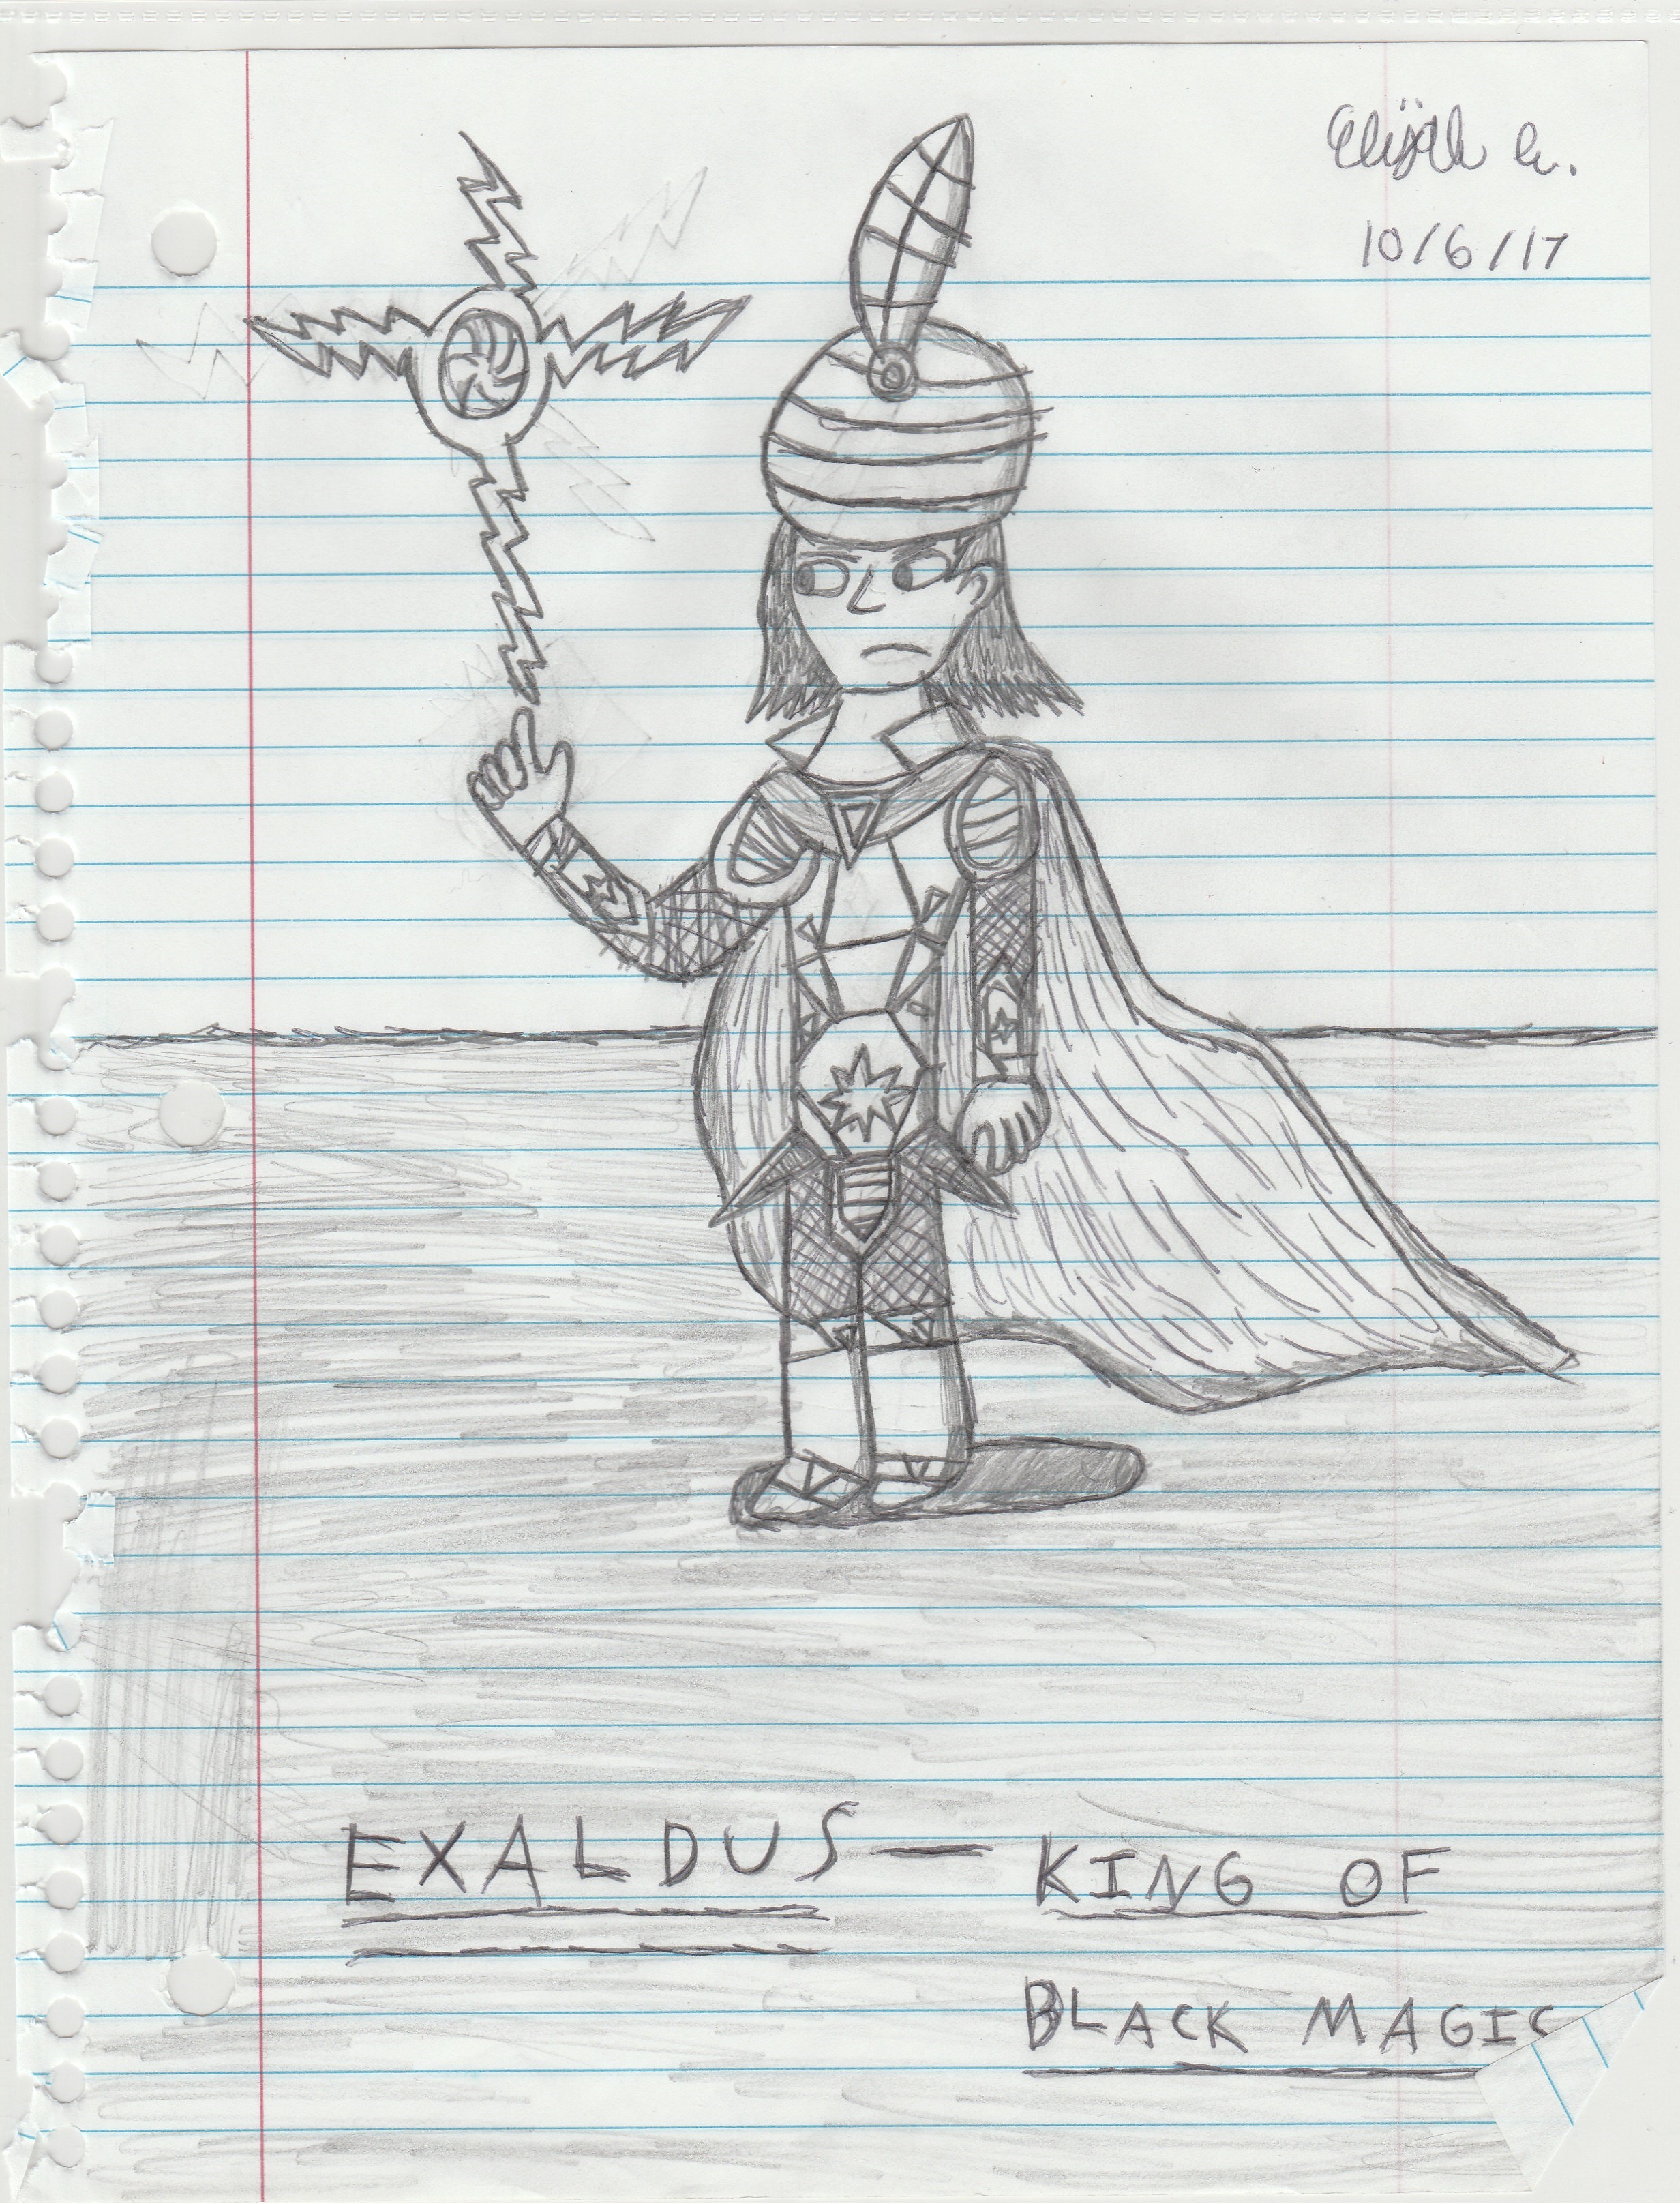 Elijah
10/6/17
EXALDUS — KING OF
BLACK MAGIC